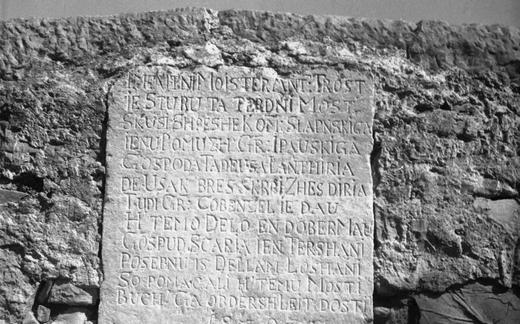 IE STURU TA TERDNI MOST
SKUSI SHPESHE KOM: SLAPNSKIGA
IENU POMUZH GR: IPAUSKIGA
GOSPODA TADEUSA LANTHIRIA
DE USAK BRES SKRBI ZHES DIRIA
TUDI GR: COBENZEL IE DAU
H TEMO DELO EN DOBER MAU
GOSPUD SCARIA IEN TERSHANI
POSEBNU IS DELLAM LOSHANI
SO POMAGALI H TEMU MOSTI
BUCH GA OBDERSHI LEIT DOSTI